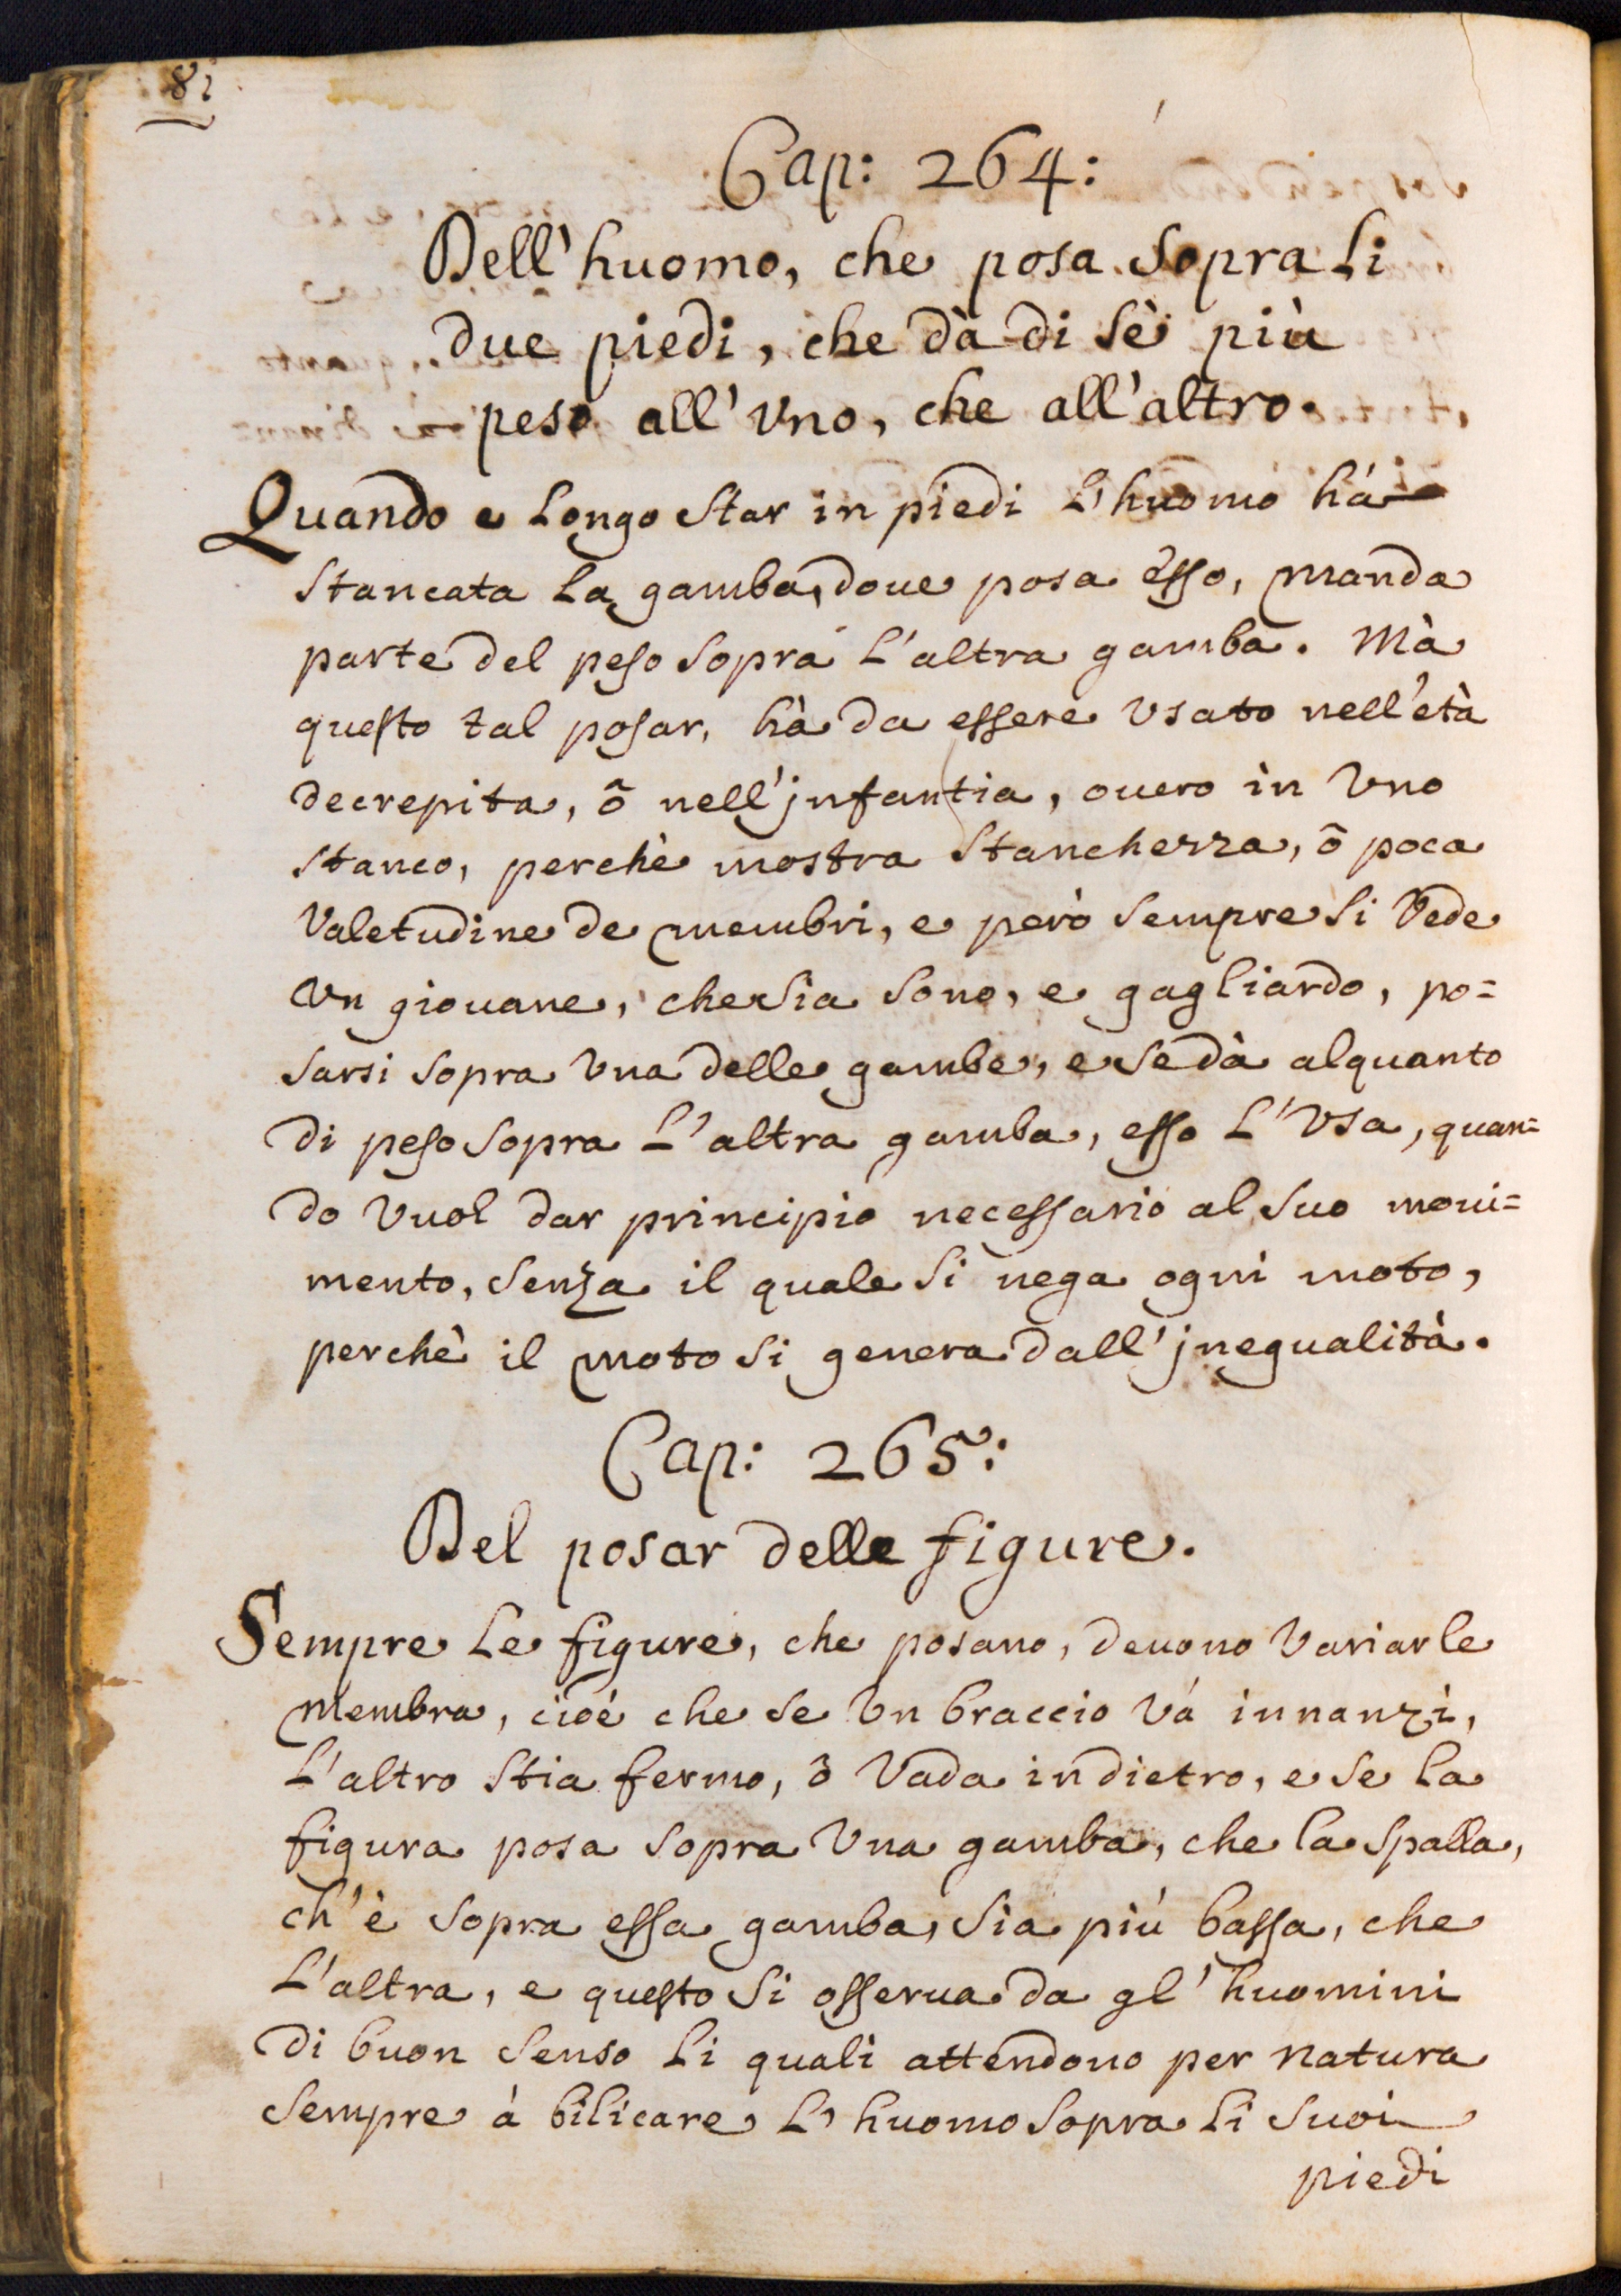 82
Cap: 264:
Dell'huomo, che posa sopra li
due piedi, che dà di sè più
peso all'vno, che all'altro.
Quando e longo star in piedi l'huomo há
stancata la gamba, doue posa esso, manda
parte del peso sopra l'altra gamba. Mà
questo tal posar, hà da essere vsato nell'età
decrepita, ô nell'jnfantia, ouero in vno
stanco, perchè mostra stanchezza, ô poca
valetudine de membri, e però sempre si vede
vn giouane, che sia sono, e gagliardo, po=
sarsi sopra vna delle gambe, e se dà alquanto
di peso sopra l'altra gamba, esso l'vsa, quan=
do vuol dar principio necessario al suo moui=
mento, senza il quale si nega ogni moto,
perchè il moto si genera dall'jnegualità.
Cap: 265:
Del posar delle figure.
Sempre le figure, che posano, deuono variar le
membra, cioé che se vn braccio vá innanzi,
l'altro stia fermo, ò vada indietro, e se la
figura posa sopra vna gamba, che la spalla,
ch'è sopra essa gamba, sia piú bassa, che
l'altra, e questo si osserua da gl'huomini
di buon senso li quali attendono per natura
sempre á bilicare l'huomo sopra li suoi
piedi